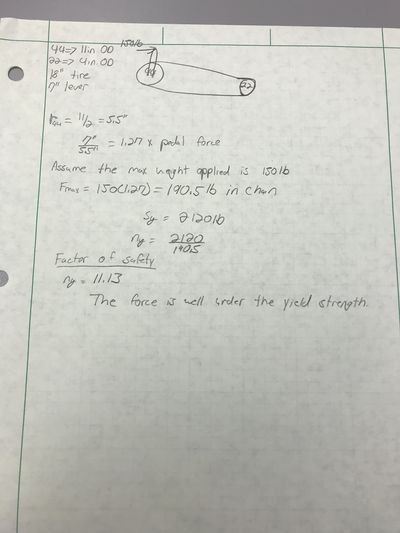 44=> 11in OD
22=> 4in OD
18" tire
7" lever
150lb
44
22
r44 = 11/2 = 5.5"
7"/5.5" = 1.27 x pedal force
Assume the max weight applied is 150 lb
Fmax = 150(1.27) = 190.5 lb in chan
Sy = 2120lb
ny = 2120/190.5
Factor of safety
ny = 11.13
The force is well under the yield strength.